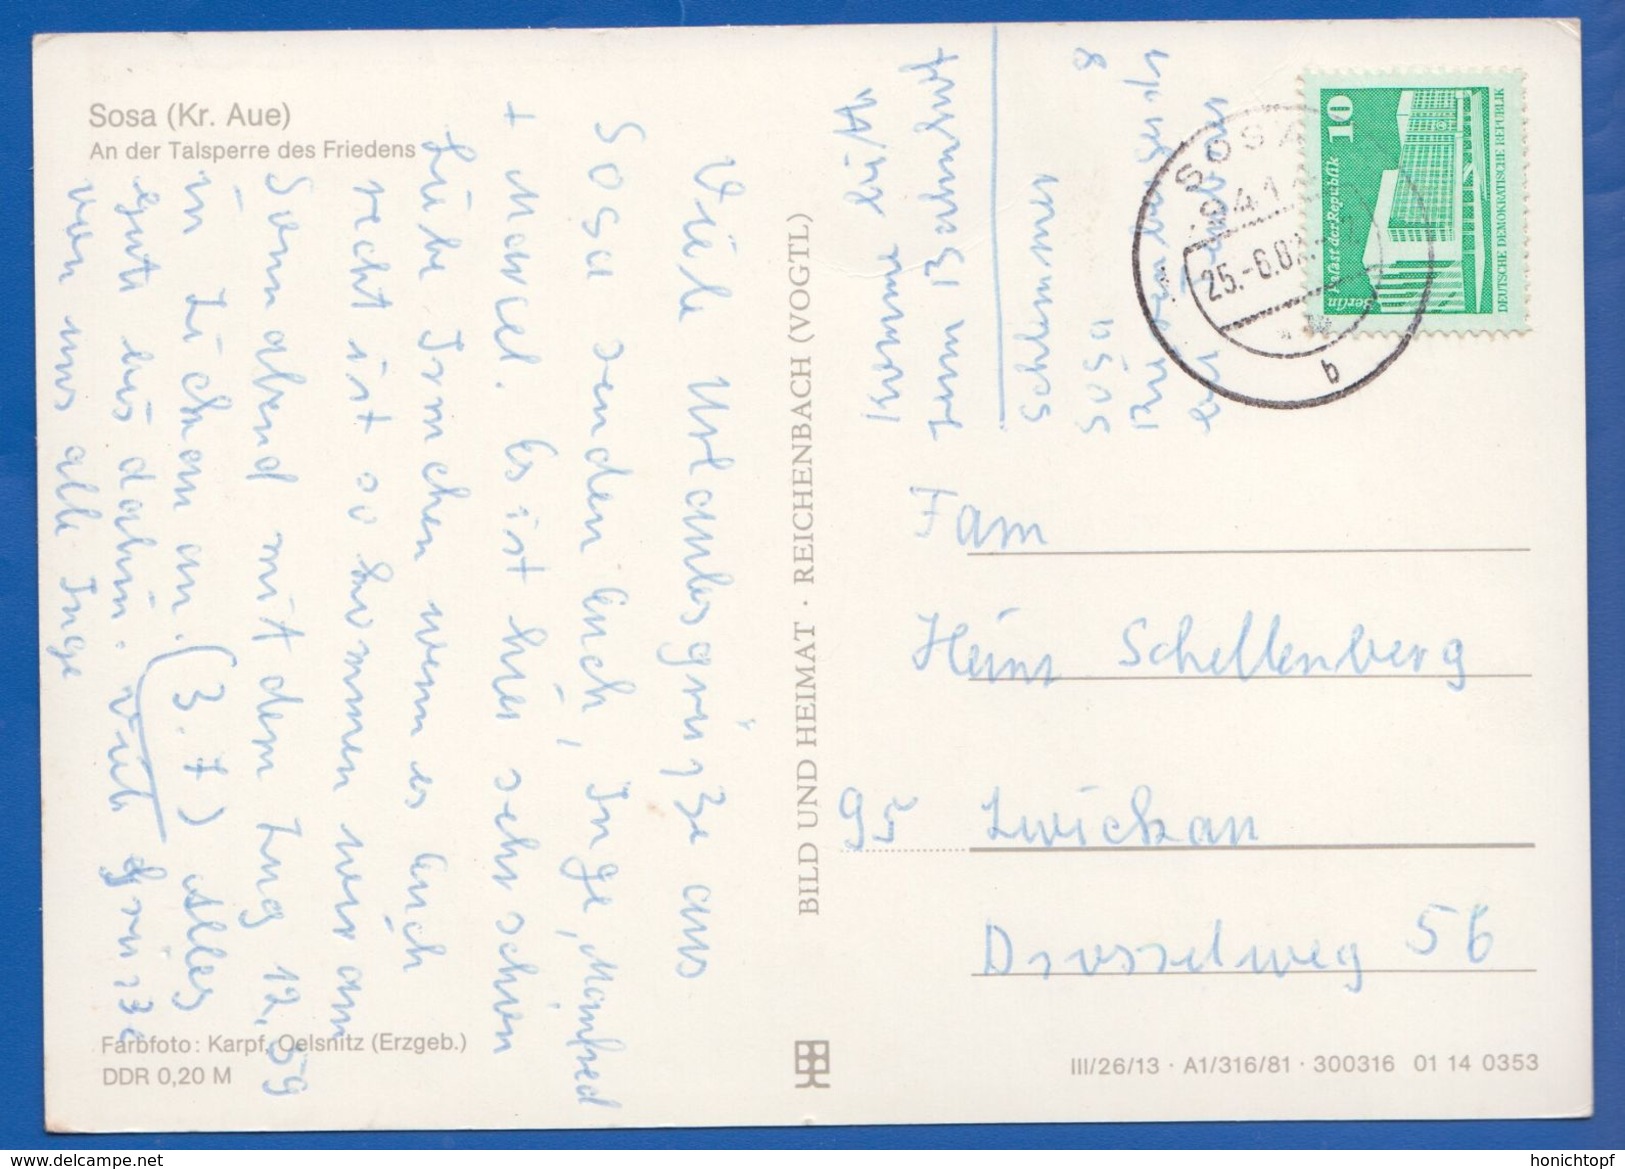 Sosa (Kr. Aue)
An der Talsperre des Friedens
Viele Urlaubsgrüße aus
Sosa senden Euch, Inge, Manfred
+ Marcel. Es ist hier sehr schön
Liebe Irmchen wenn es Euch
recht ist so kommen wir am
Sonnabend mit dem Zug 12.59
in Zwickau an. (3.7) Alles
gute bis dahin. Viele Grüße
von uns alle Inge
BILD UND HEIMAT · REICHENBACH (VOGTL)
Farbfoto: Karpf, Oelsnitz (Erzgeb.)
DDR 0,20 M
Wir
kommen
zum Bahnhof
Schlemmer
Sosa
8
SOSA
941
25.-6.82.-
b
10
Palast der Republik
Berlin
DEUTSCHE DEMOKRATISCHE REPUBLIK
Fam
Heinz Schellenberg
95 Zwickau
Drosselweg 56
III/26/13 · A1/316/81 · 300316 01 14 0353
www.delcampe.net
honichtopf